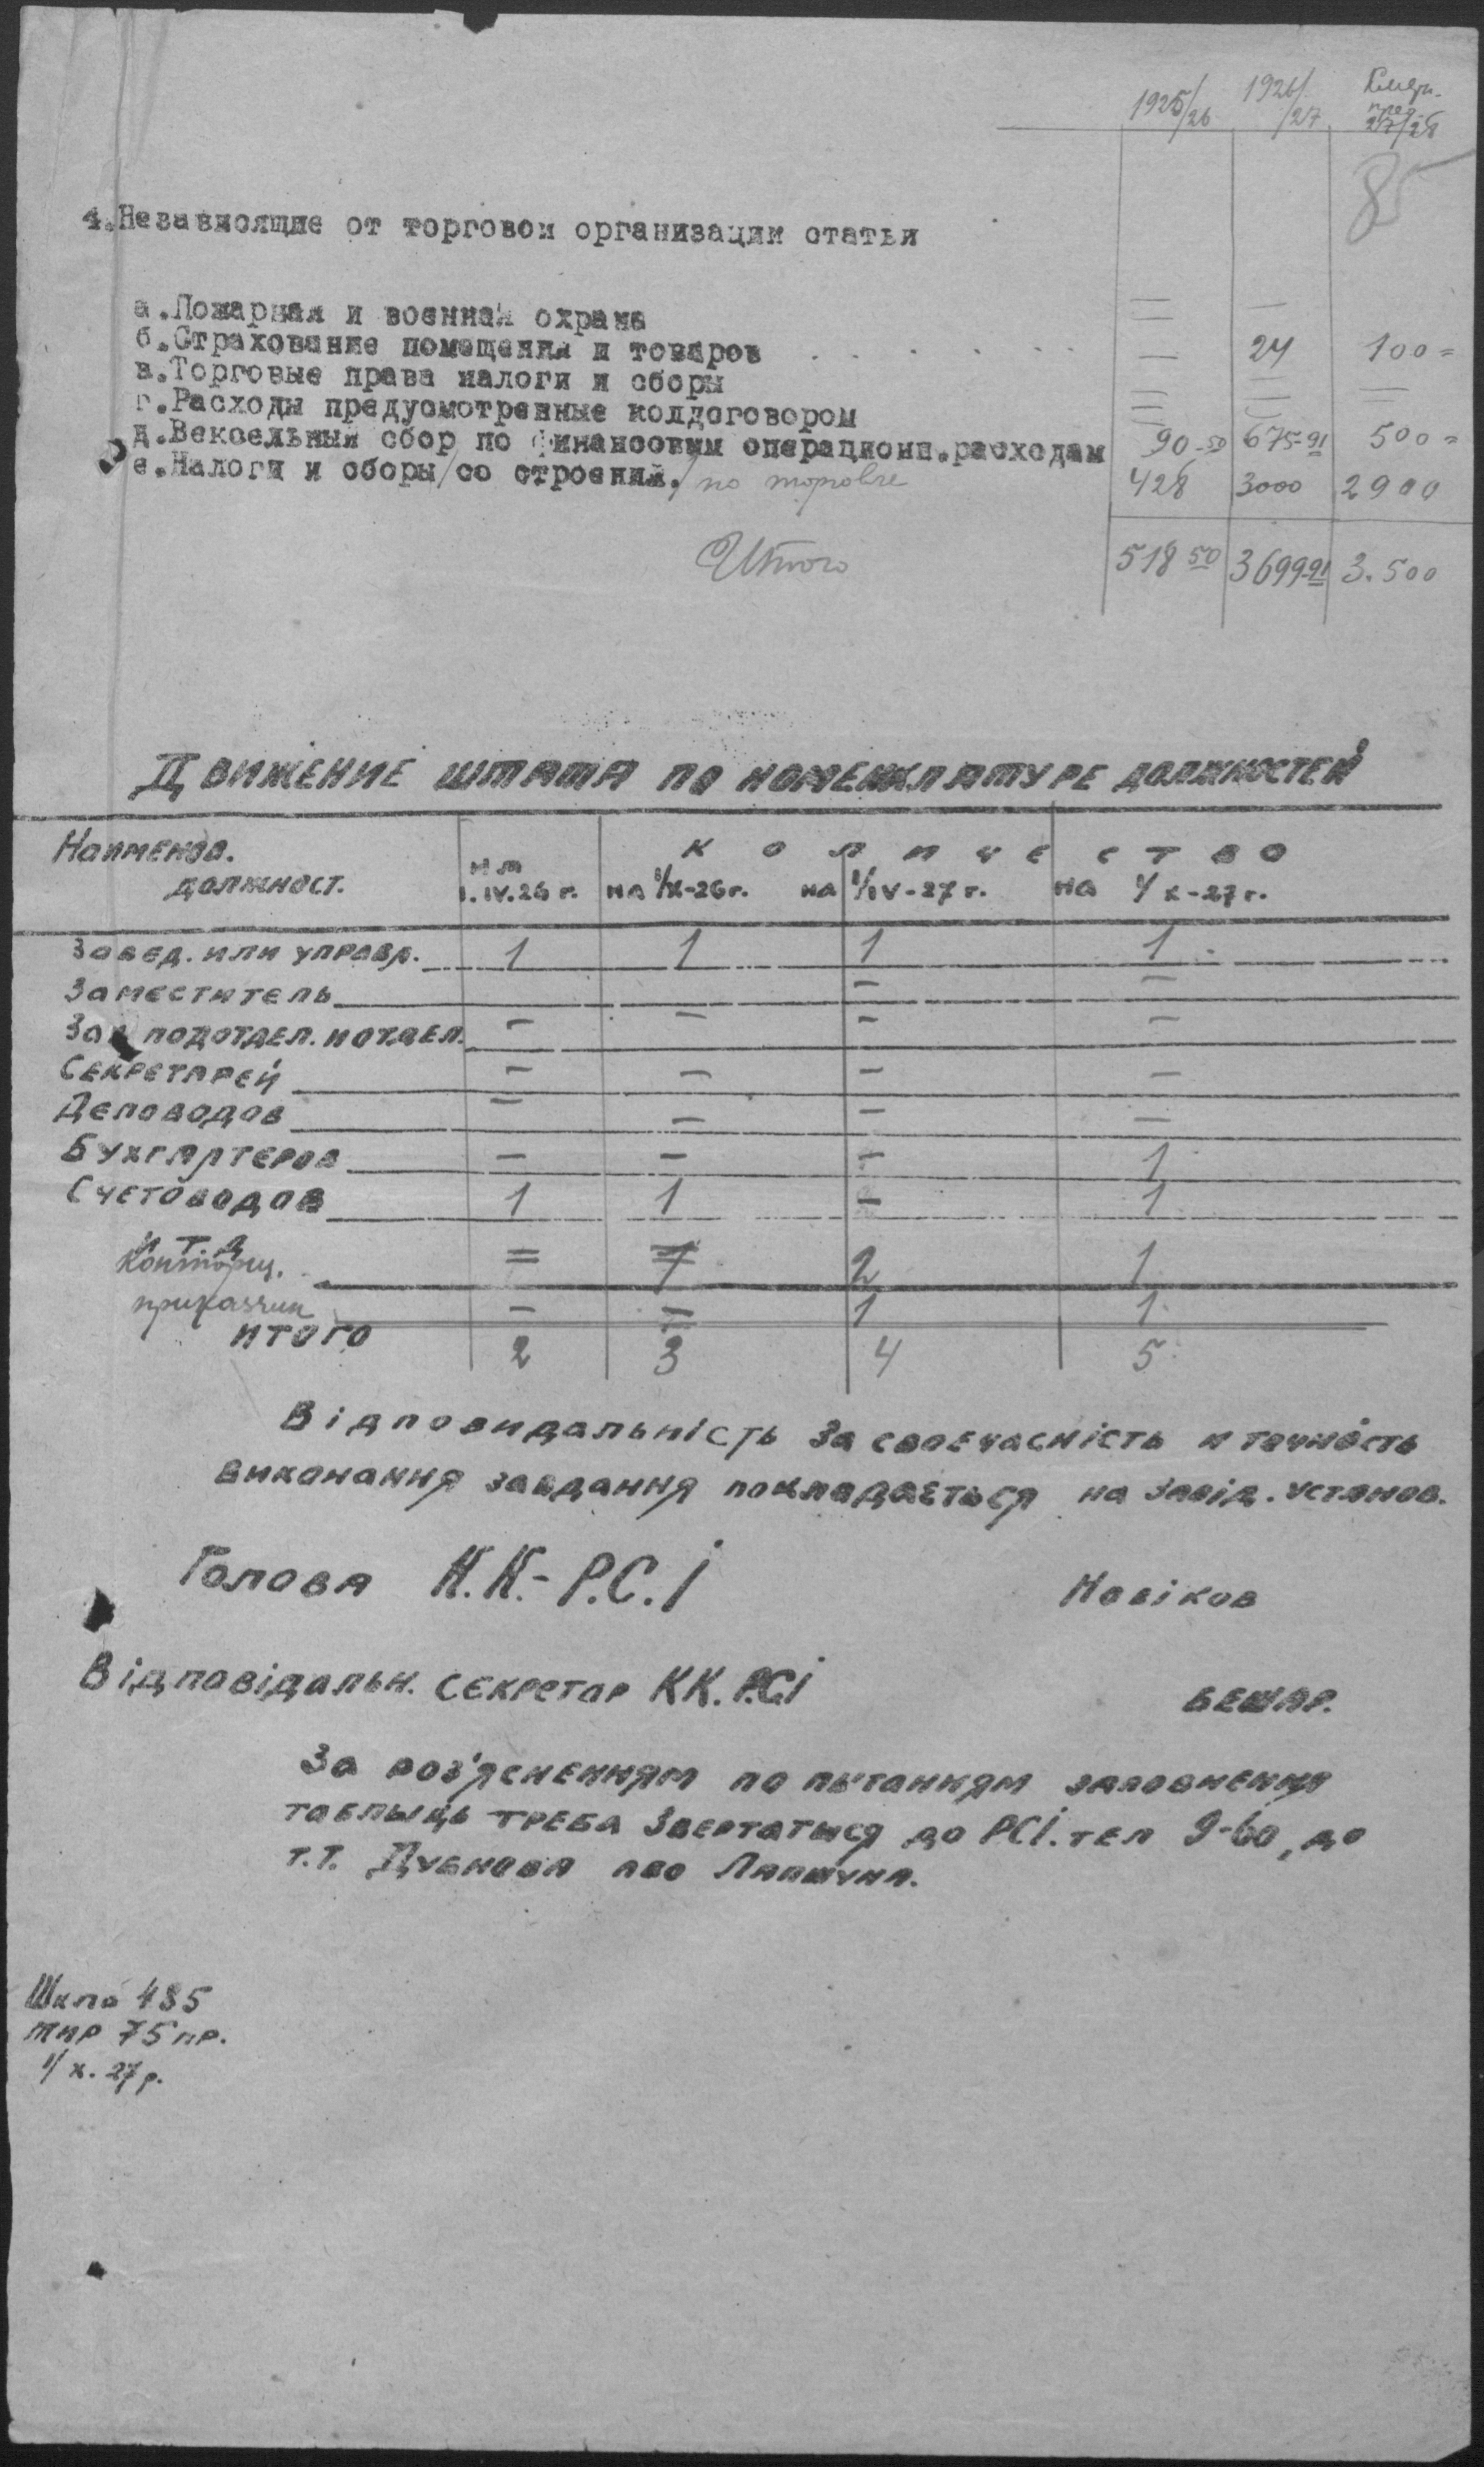 1925/26 1926/27 27/28
85
4. Независящие от торговой организации статьи
а. Пожарная и военная охрана — —
б. Страхование помещения и товаров . . . . . . — 24 100=
в. Торговые права налоги и сборы — — —
г. Расходы предусмотренные колдоговором — —
д. Вексельный сбор по финансовым операционн. расходам 90-50 675-91 500=
е. Налоги и сборы /со строений./ по торговле 428 3000 2900
Итого 518 50 3699-91 3.500
Движение штата по номенклатуре должностей
Наименов. должност.
Количество
на 1.IV.26 г. на 1/X-26 г. на 1/IV-27 г. на 1/X-27 г.
Завед. или управл. 1 1 1 1
Заместитель — —
Зав подотдел. и отдел. — — — —
Секретарей — — — —
Деловодов — — — —
Бухгалтеров — — — 1
Счетоводов 1 1 — 1
и т д
Конторщ. = 1 2 1
приказчик — = 1 1
итого 2 3 4 5
Відповидальність за своечасність и точність
виконання завдання покладається на завід. установ.
Голова К.К.-Р.С.І Новіков
Відповідальн. секретар КК.РСІ Бешар.
За роз'ясненням по пытанням заповнення
таблыць треба звертатыся до РСІ. тел 9-60, до
т.т. Дубнова або Лапшуна.
Шкло 485
тир 75 пр.
1/X. 27 р.